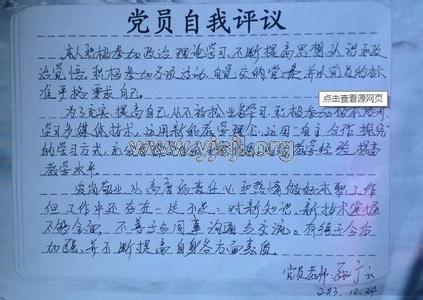 党员自我评议
本人积极参加政治理论学习,不断提高思想认识和政
治觉悟。积极参加各项活动,自觉交纳党费,并以党员的标
准严格要求自己。
点击查看源网页
为了充实、提高自己,从不放松业务学习,积极参加
学习多媒体技术,运用新的教学理念,运用"自主合作探究"
的学习方式,
教学经验,提高
教学水平。
www.yjsjl.org
爱岗敬业,从高度的责任心和热情做好本职工作
但工作中还存在一定不足:对新知识、新技术掌握
不够全面,不善于与同事沟通与交流。有待于今后
加强,并不断提高自身各方面素质。
党员教师: